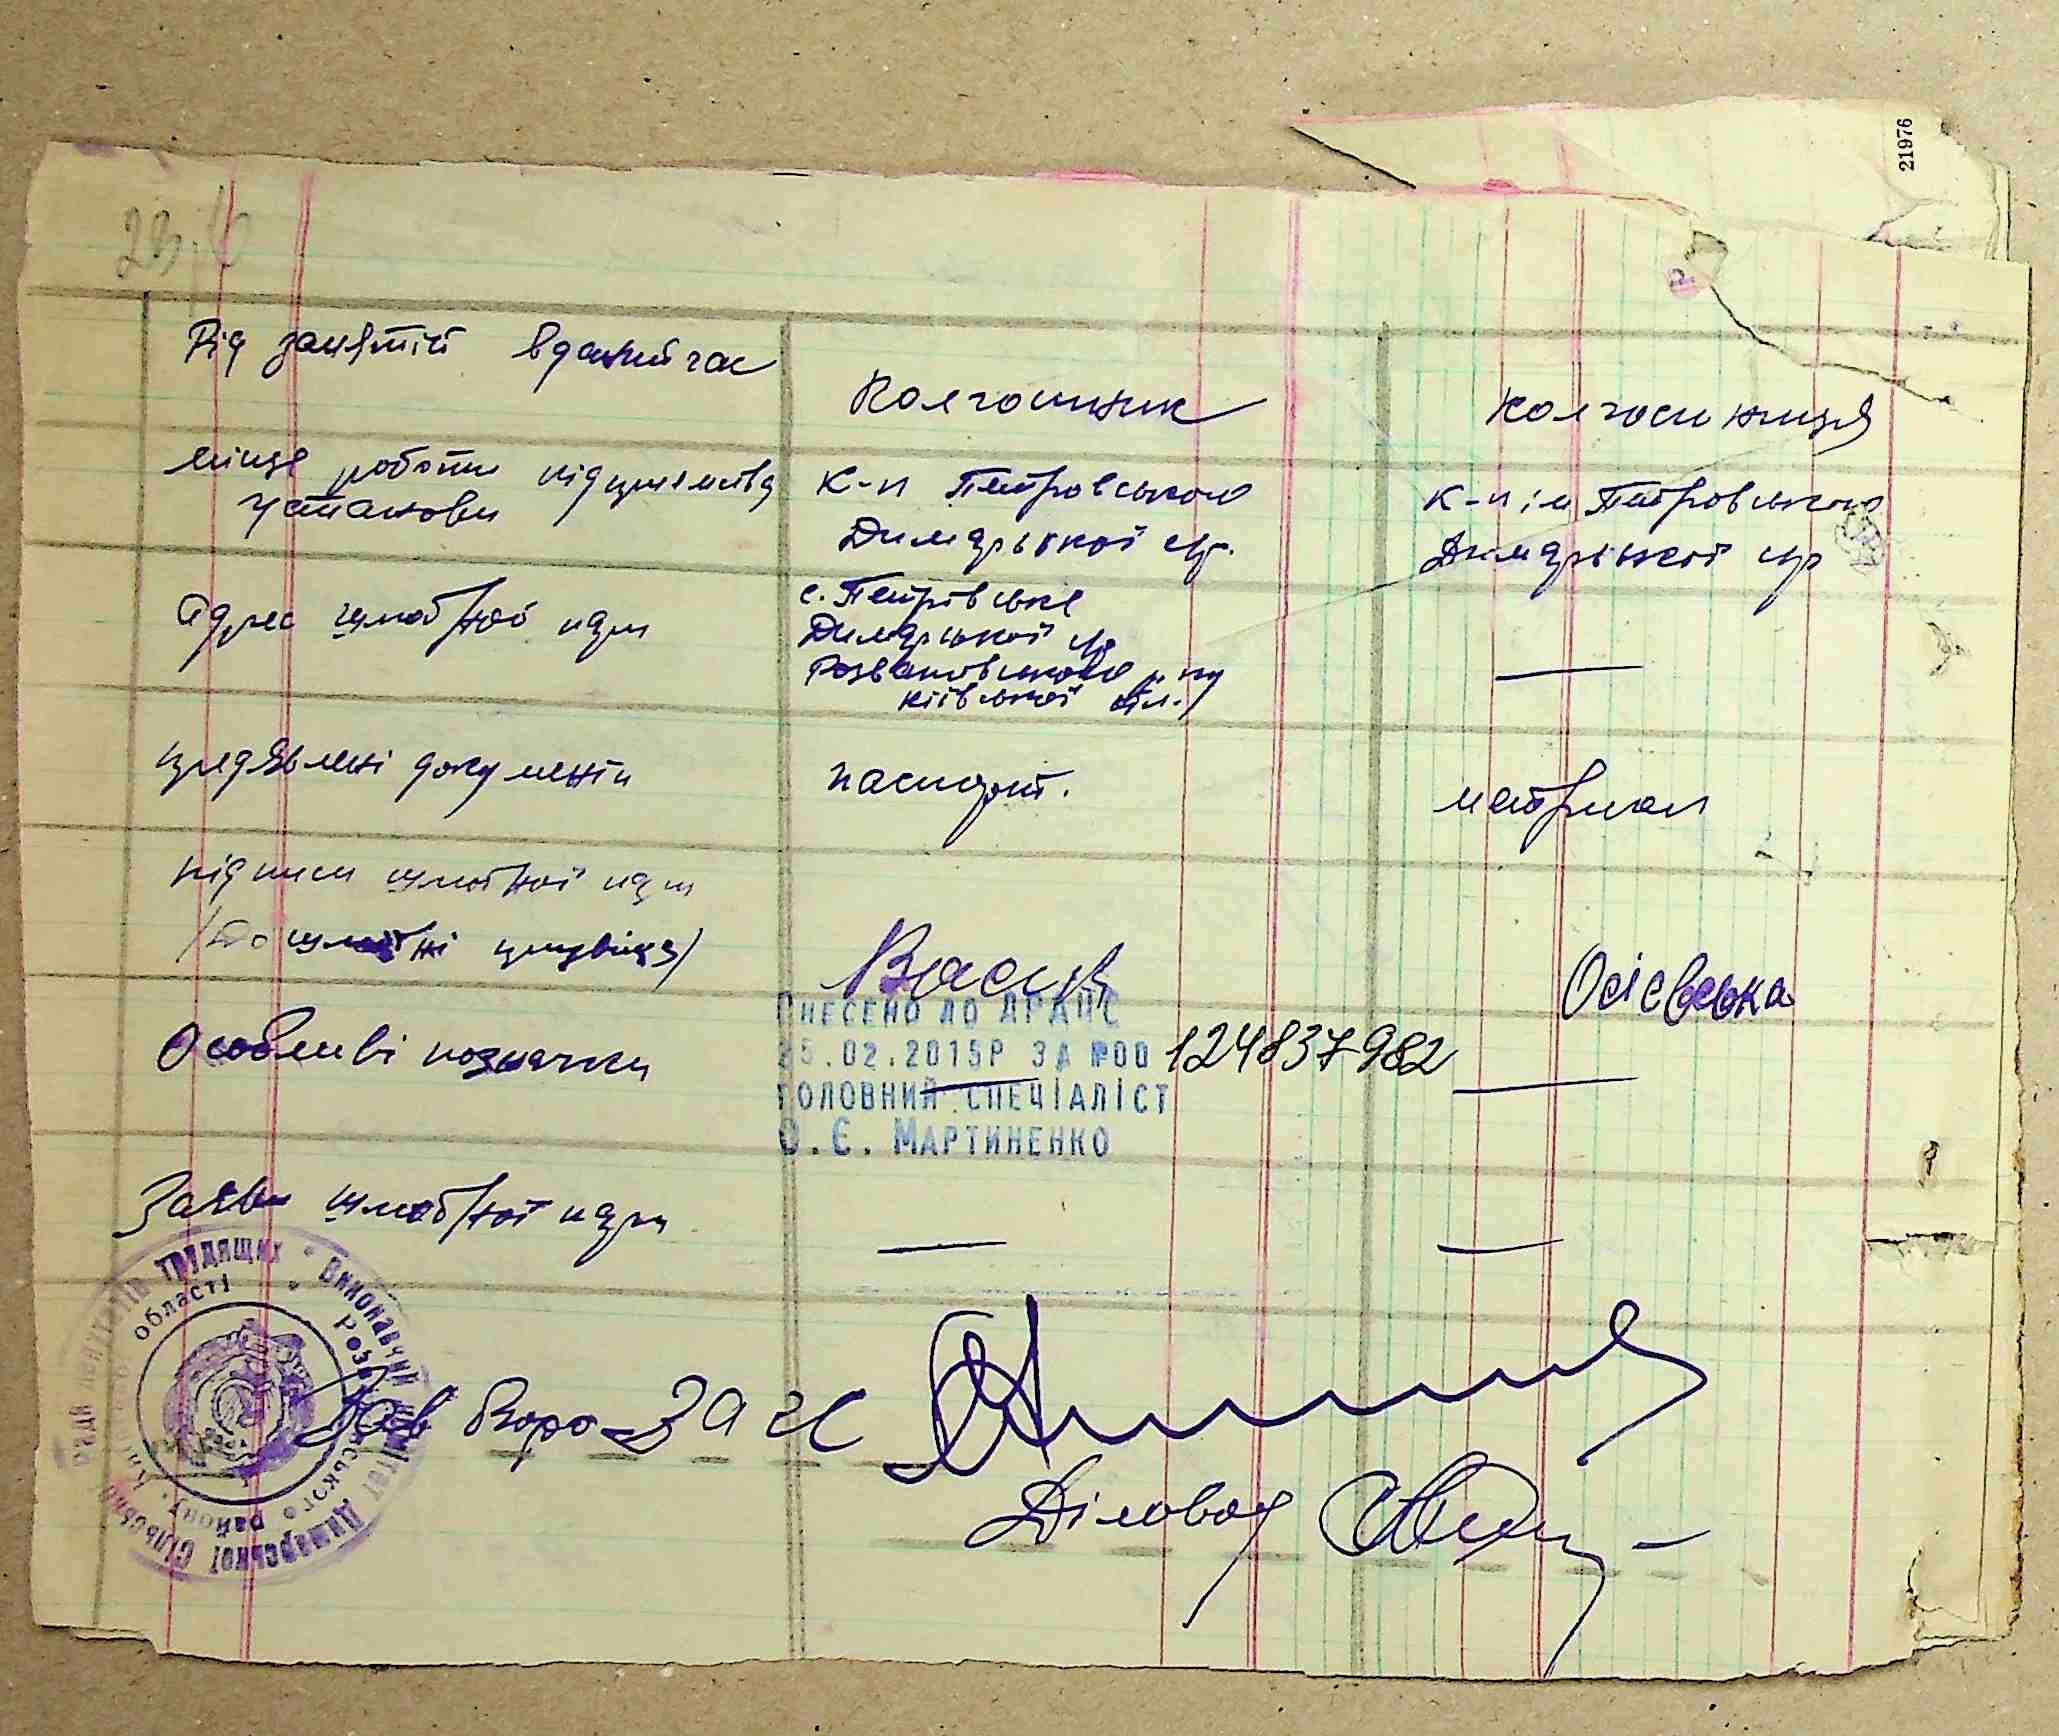 21976
Рід занятій вданий час
Колгоспник
колгоспниця
місце роботи підприємства
установи
К-п Петровського
Димарської с/р.
К-п ім Петровського
Димарської с/р
Адрес шлюбної пари
с. Петрівське
Димарської с/р
Розважівського р-ну
Київської обл.
—
предявлені документи
паспорт.
матриал
підписи шлюбної пари
/Дошлюбні прізвища/
Осієвська
Особливі позначки
ВНЕСЕНО ДО ДРАЦС
25.02.2015Р ЗА №00 124837982
ГОЛОВНИЙ СПЕЦІАЛІСТ
О.Є. МАРТИНЕНКО
—
Заяви шлюбної пари
—
—
Виконавчий комітет Димарської сільської ради депутатів трудящих
Розважівського району, Київської області
Зав бюро ЗАГС
Діловод